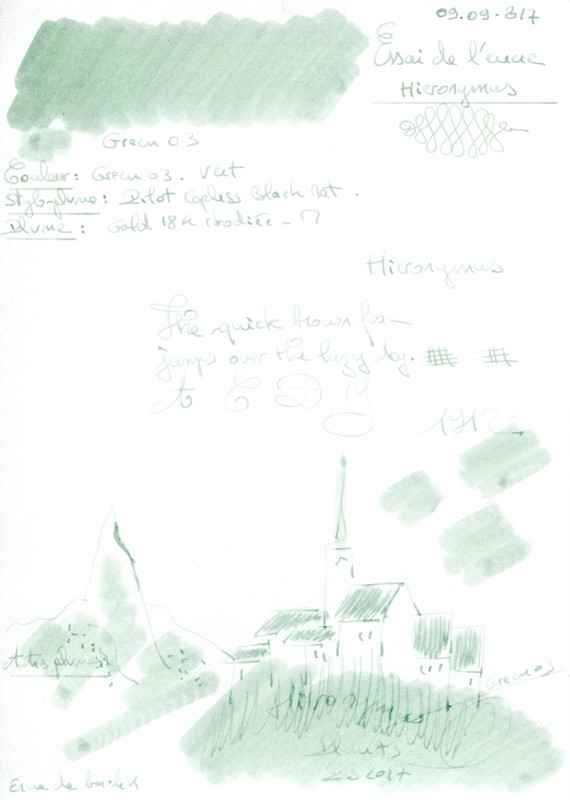 09.09.2017
Essai de l'encre
Hieronymus
Green 03
Couleur: Green 03. Vert
Stylo-plume: Pilot Capless Black Mat.
Plume: Gold 18k rhodiée - M
Hieronymus
The quick brown fox
jumps over the lazy dog.
A C D Y
1912
Green 03
Hieronymus